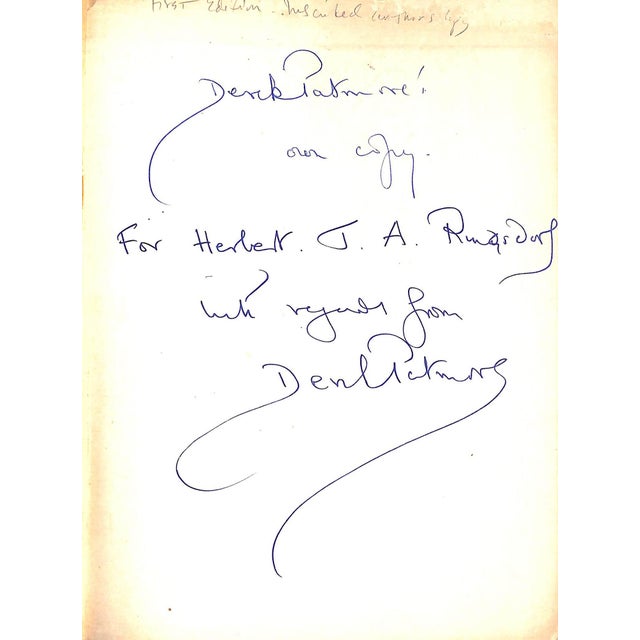 First Edition - Inscribed author's copy
Derek Patmore's
own copy.
For Herbert. J. A. Rungsdorf
with regards from
Derek Patmore